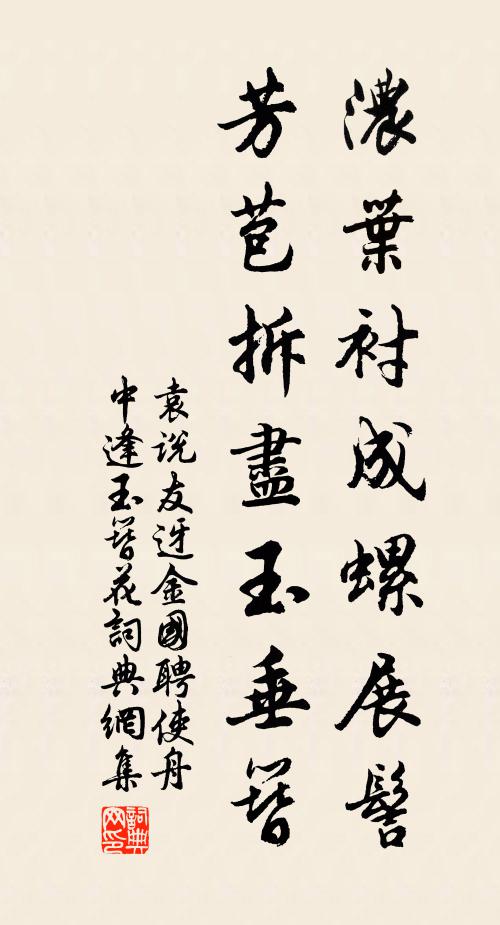 濃葉衬成螺展髻
芳苞拆盡玉垂簪
袁说友迓金國聘使舟
中逢玉簪花詞典網集
詞典网印